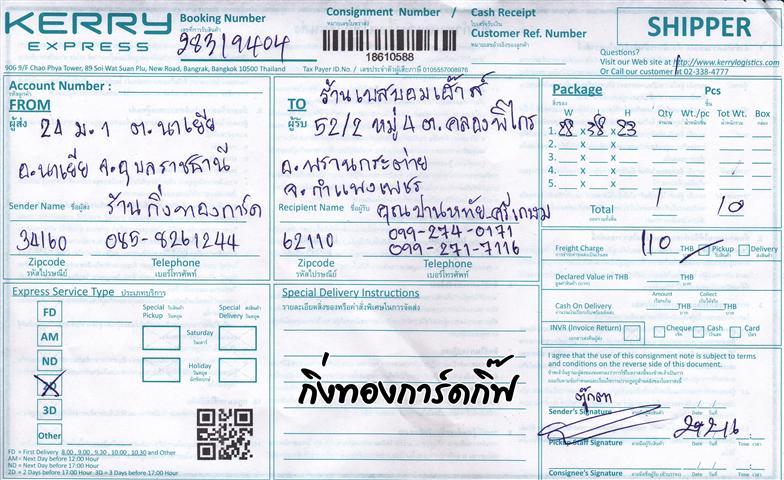 KERRY EXPRESS
Booking Number
เลขที่การรับสินค้า
28319404
Consignment Number /
หมายเลขใบตราส่ง
18610588
Cash Receipt
ใบเสร็จรับเงิน
Customer Ref. Number
หมายเลขอ้างอิงของลูกค้า
SHIPPER
906 9/F Chao Phya Tower, 89 Soi Wat Suan Plu, New Road, Bangrak, Bangkok 10500 Thailand
Tax Payer ID.No. / เลขประจำตัวผู้เสียภาษี 0105557008976
Questions?
Visit our Web site at http://www.kerrylogistics.com
Or Call our customer at 02-338-4777
Account Number :
รหัสลูกค้า
FROM
ผู้ส่ง
24 ม.1 ต.นาเยีย
อ.นาเยีย จ.อุบลราชธานี
Sender Name ชื่อผู้ส่ง
ร้านกิ่งทองการ์ด
34160
085-8261244
Zipcode
รหัสไปรษณีย์
Telephone
เบอร์โทรศัพท์
TO
ผู้รับ
52/2 หมู่ 4 ต.คลองพิไกร
อ.พรานกระต่าย
จ.กำแพงเพชร
Recipient Name ชื่อผู้รับ
คุณปานหทัย ศรีเกษม
62110
099-274-0171
099-271-7116
Zipcode
รหัสไปรษณีย์
Telephone
เบอร์โทรศัพท์
Package
สิ่งของ
Pcs
ชิ้น
W L H
Qty Wt./pc Tot Wt. Box
จำนวน น้ำหนัก/ชิ้น น้ำหนักรวม กล่อง
1. 28 x 38 x 23
2. x x
3. x x
4. x x
5. x x
Total
1
10
Freight Charge
110
THB
บาท
Pickup
รับสินค้า
Delivery
ส่งสินค้า
Declared Value in THB
THB
บาท
Amount
Collect
Cash On Delivery
THB
บาท
INVR (Invoice Return)
Cheque
เช็ค
Cash
เงินสด
Card
บัตร
Express Service Type ประเภทบริการ
FD
AM
ND
2D
3D
Other
Special Pickup
Special Delivery
Saturday
วันเสาร์
Holiday
วันหยุด
นักขัตฤกษ์
FD = First Delivery 8.00 , 9.00 , 9.30 , 10.00 , 10.30 and Other
AM = Next Day before 12:00 Hour
ND = Next Day before 17:00 Hour
2D = 2 Days before 17:00 Hour 3D = 3 Days before 17:00 Hour
Special Delivery Instructions
รายละเอียดสิ่งของหรือคำสั่งพิเศษในการจัดส่ง
กิ่งทองการ์ดกิ๊ฟ
I agree that the use of this consignment note is subject to terms
and conditions on the reverse side of this document.
ตุ๊กตา
Sender's Signature ลายมือชื่อผู้ส่ง
Date วันที่
Pickup Staff Signature
Date วันที่ Time เวลา
Consignee's Signature
Date วันที่ Time เวลา